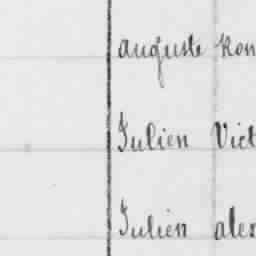 auguste Hon
Julien Vict
Julien alex